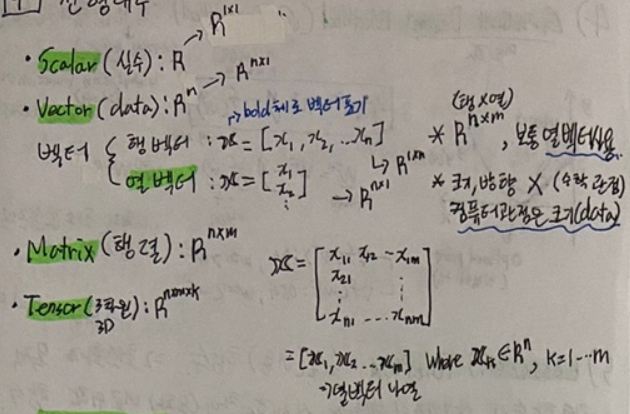 1 선형대수
· Scalar (실수) : R → R^{1×1}
· Vector (data) : R^n → R^{n×1}
→ bold체로 벡터표기
벡터 { 행벡터 : x = [x_1, x_2, ... x_n] → R^{1×n}
열벡터 : x = [x_1 x_2 ⋮] → R^{n×1}
(행×열)
* R^{n×m}, 보통 열벡터사용
* 크기, 방향 X (수학 관점)
컴퓨터관점은 크기(data)
· Matrix (행렬) : R^{n×m}
x = [x_{11} x_{12} ~ x_{1m}
x_{21} ⋮
⋮
x_{n1} ... x_{nm}]
· Tensor (3차원) : R^{n×m×k}
3D
= [x_1, x_2 ... x_m] where x_k ∈ R^n, k=1...m
→ 열벡터 나열